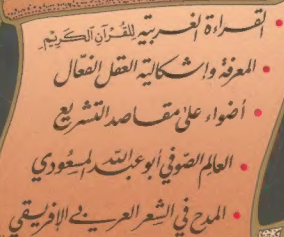 القراءة الغربية للقرآن الكريم
المعرفة وإشكالية العقل الفعّال
أضواء على مقاصد التشريع
العالم الصوفي أبو عبد الله المسعودي
المدح في الشعر العربي الإفريقي